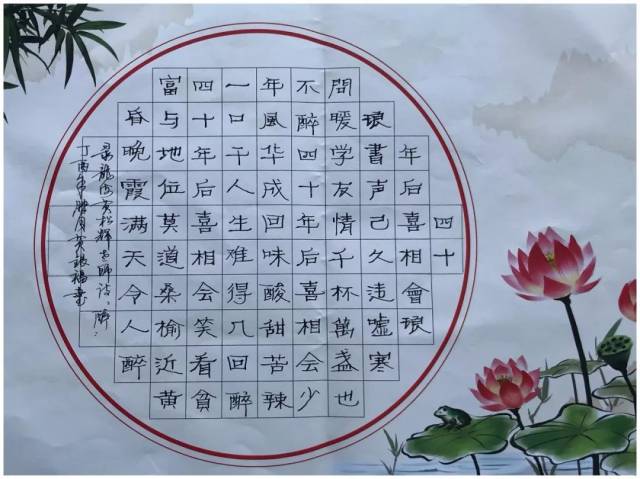 四十
年后喜相會琅
琅書声己久违嘘寒
問暖学友情千杯萬盏也
不醉四十年后喜相会少
年風华成回味酸甜苦辣
一口干人生难得几回醉
四十年后喜相会笑看貧
富与地位莫道桑榆近黄
昏晚霞满天令人醉
录龍海黄松輝老師詩：醉：
丁酉年腊月黄銀福書